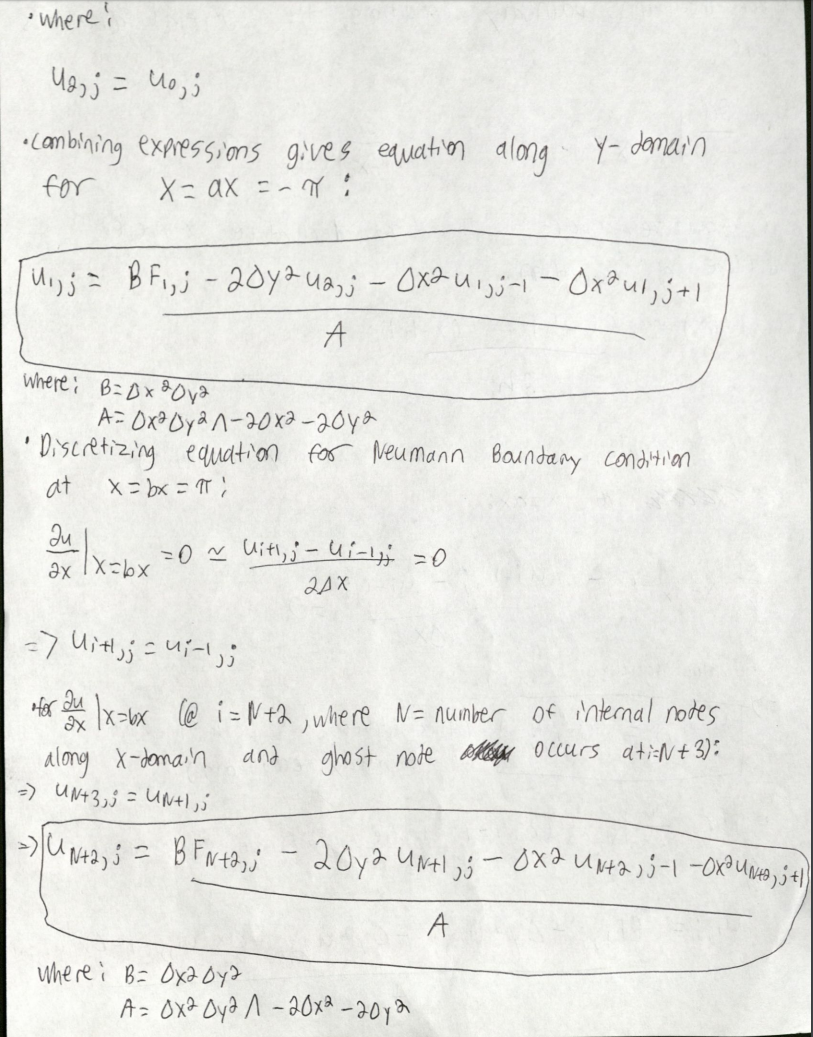 • where:
u₂,j = u₀,j
• Combining expressions gives equation along y-domain
for x = ax = -π :
u₁,j = BF₁,j - 2Δy²u₂,j - Δx²u₁,j-1 - Δx²u₁,j+1
A
where: B = Δx²Δy²
A = Δx²Δy²Λ - 2Δx² - 2Δy²
• Discretizing equation for Neumann Boundary condition
at x = bx = π :
∂u/∂x |x=bx = 0 ≃ ui+1,j - ui-1,j / 2Δx = 0
=> ui+1,j = ui-1,j
• for ∂u/∂x |x=bx (@ i = N+2, where N = number of internal notes
along x-domain and ghost note occurs at i=N+3):
=> uN+3,j = uN+1,j
=> uN+2,j = BFN+2,j - 2Δy² uN+1,j - Δx² uN+2,j-1 - Δx² uN+2,j+1
A
where: B = Δx²Δy²
A = Δx²Δy²Λ - 2Δx² - 2Δy²